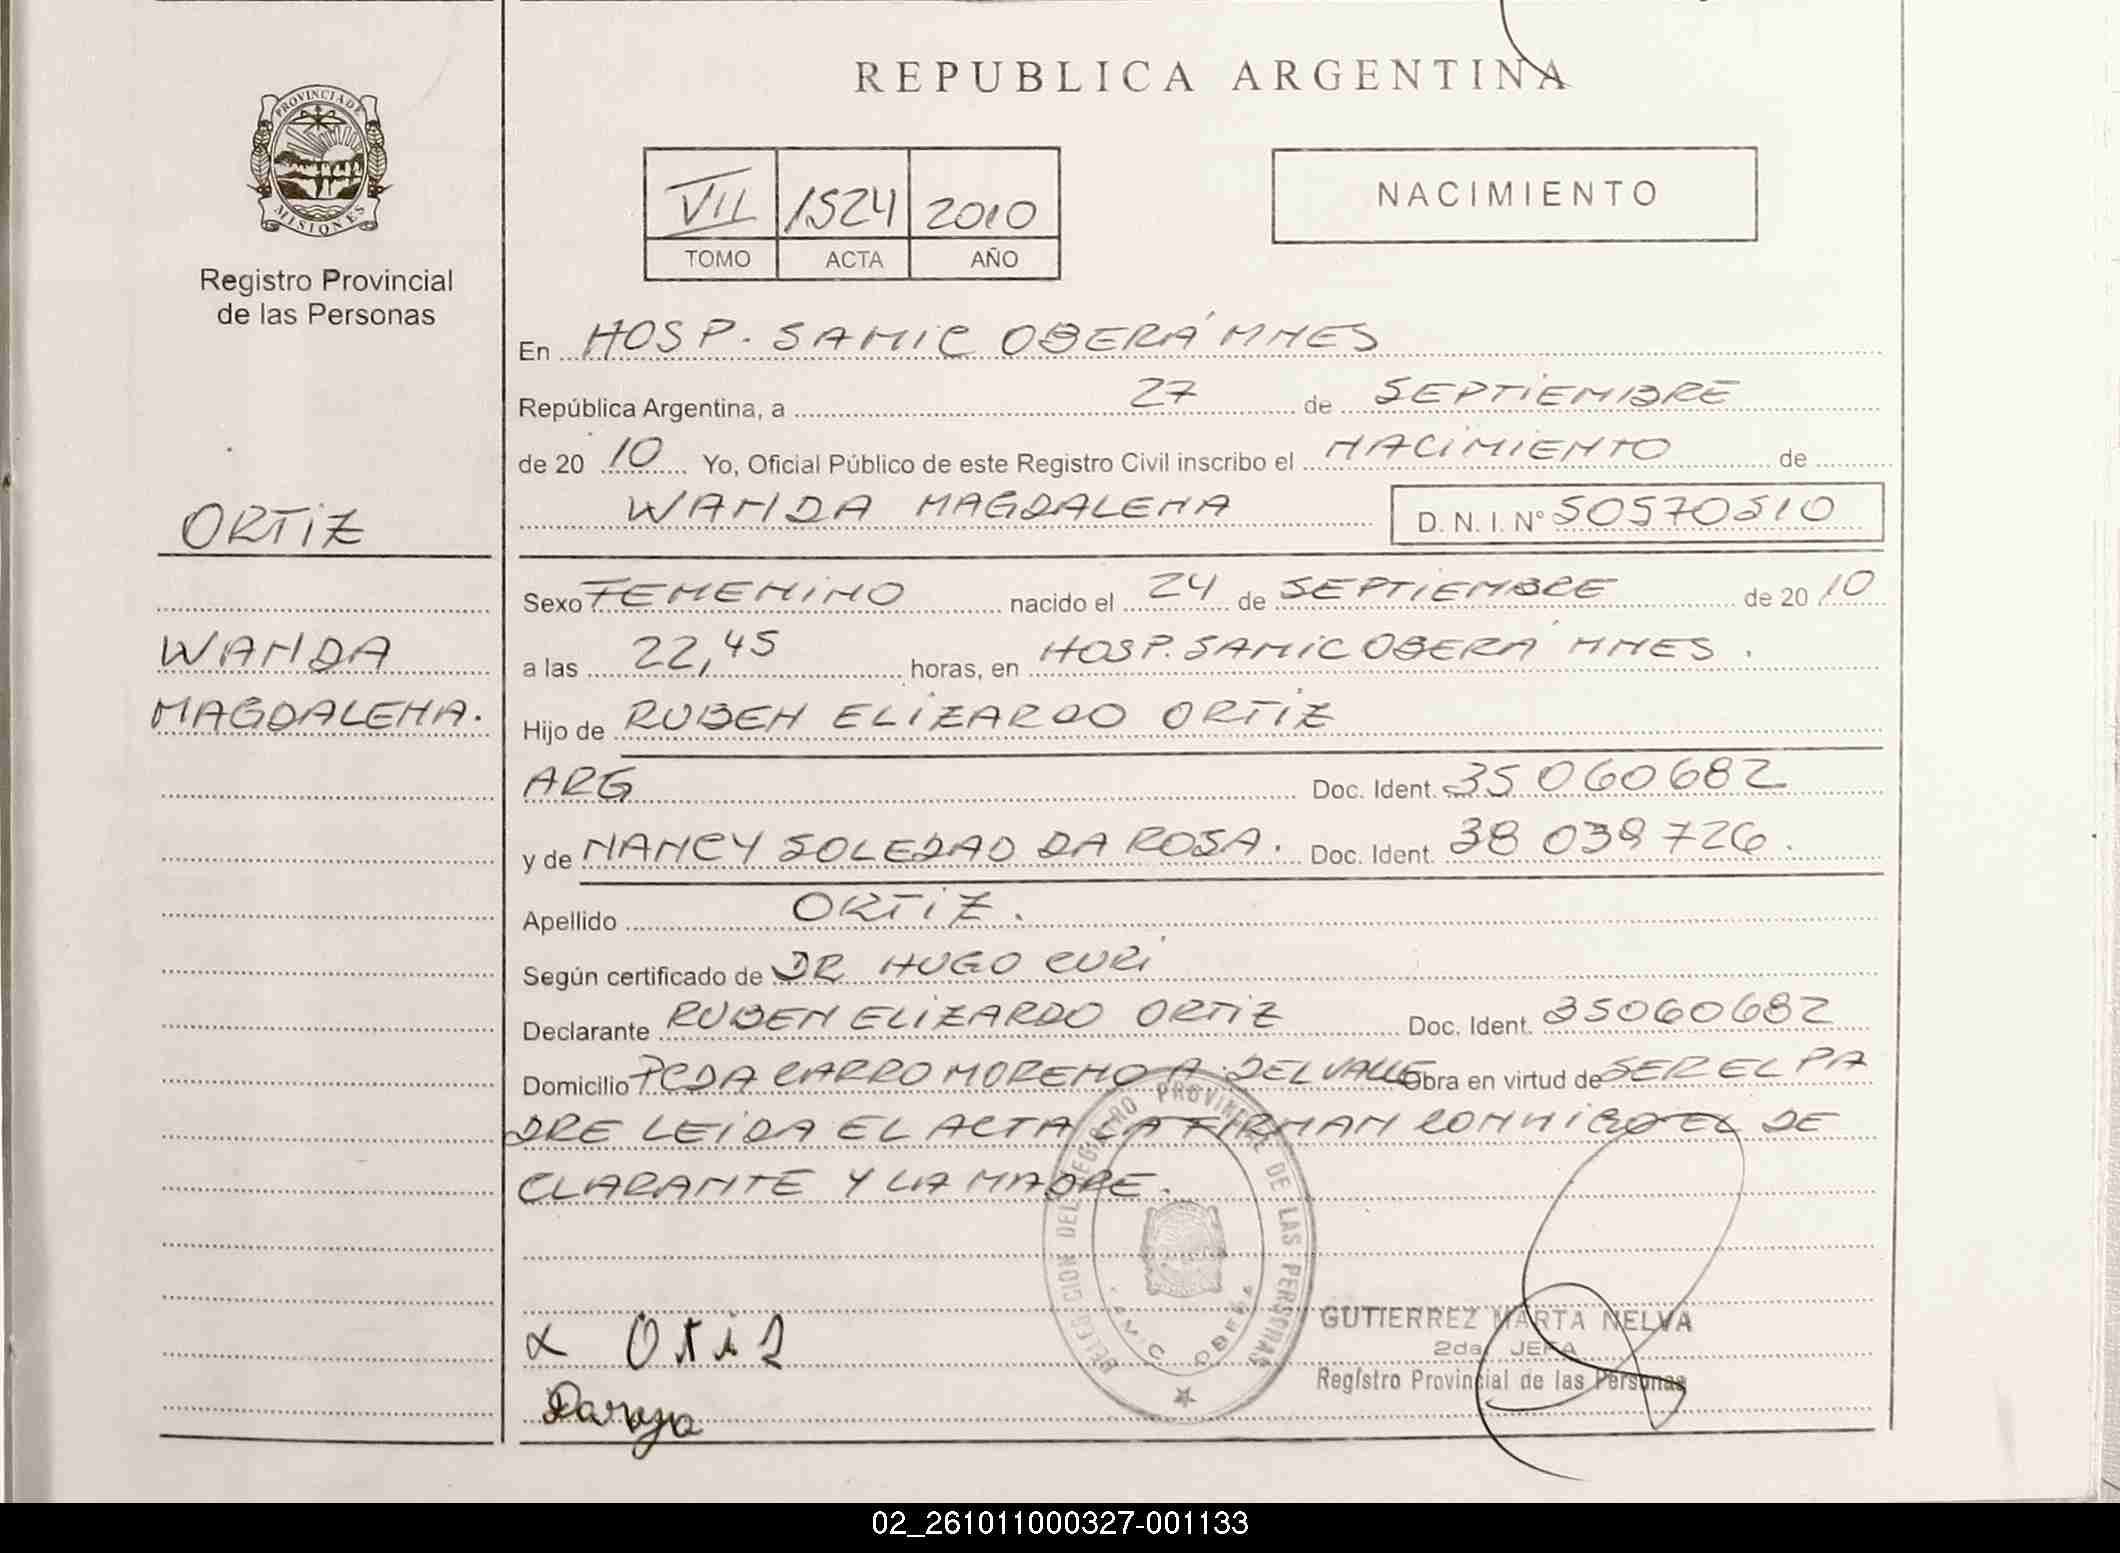 REPUBLICA ARGENTINA
PROVINCIA DE MISIONES
Registro Provincial
de las Personas
VII 1524 2010
TOMO ACTA AÑO
NACIMIENTO
En HOSP. SAMIC OBERÁ MNES
República Argentina, a 27 de SEPTIEMBRE
de 20 10 Yo, Oficial Público de este Registro Civil inscribo el NACIMIENTO de
WANDA MAGDALENA D. N. I. N° 50570510
ORTIZ
WANDA
MAGDALENA.
Sexo FEMENINO nacido el 24 de SEPTIEMBRE de 20 10
a las 22,45 horas, en HOSP. SAMIC OBERÁ MNES.
Hijo de RUBEN ELIZARDO ORTIZ
ARG Doc. Ident. 35 060 682
y de NANCY SOLEDAD DA ROSA. Doc. Ident. 38 038 726.
Apellido ORTIZ.
Según certificado de DR HUGO CURI
Declarante RUBEN ELIZARDO ORTIZ Doc. Ident. 35060682
Domicilio PCDA CARRO MORENO A. DEL VALLE Obra en virtud de SER EL PA
DRE LEIDA EL ACTA LA FIRMAN CONMIGO EL DE
CLARANTE Y LA MADRE.
DELEGACION DEL REGISTRO PROVINCIAL DE LAS PERSONAS
GUTIERREZ MARTA NELVA
2da. JEFA
Registro Provincial de las Personas
02_261011000327-001133